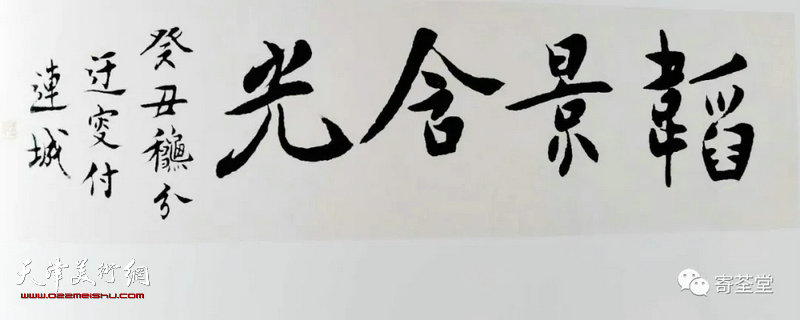 韜景含光
癸丑龝分
迂叟付
連城
天津美術網
www.022meishu.com
寄荃堂